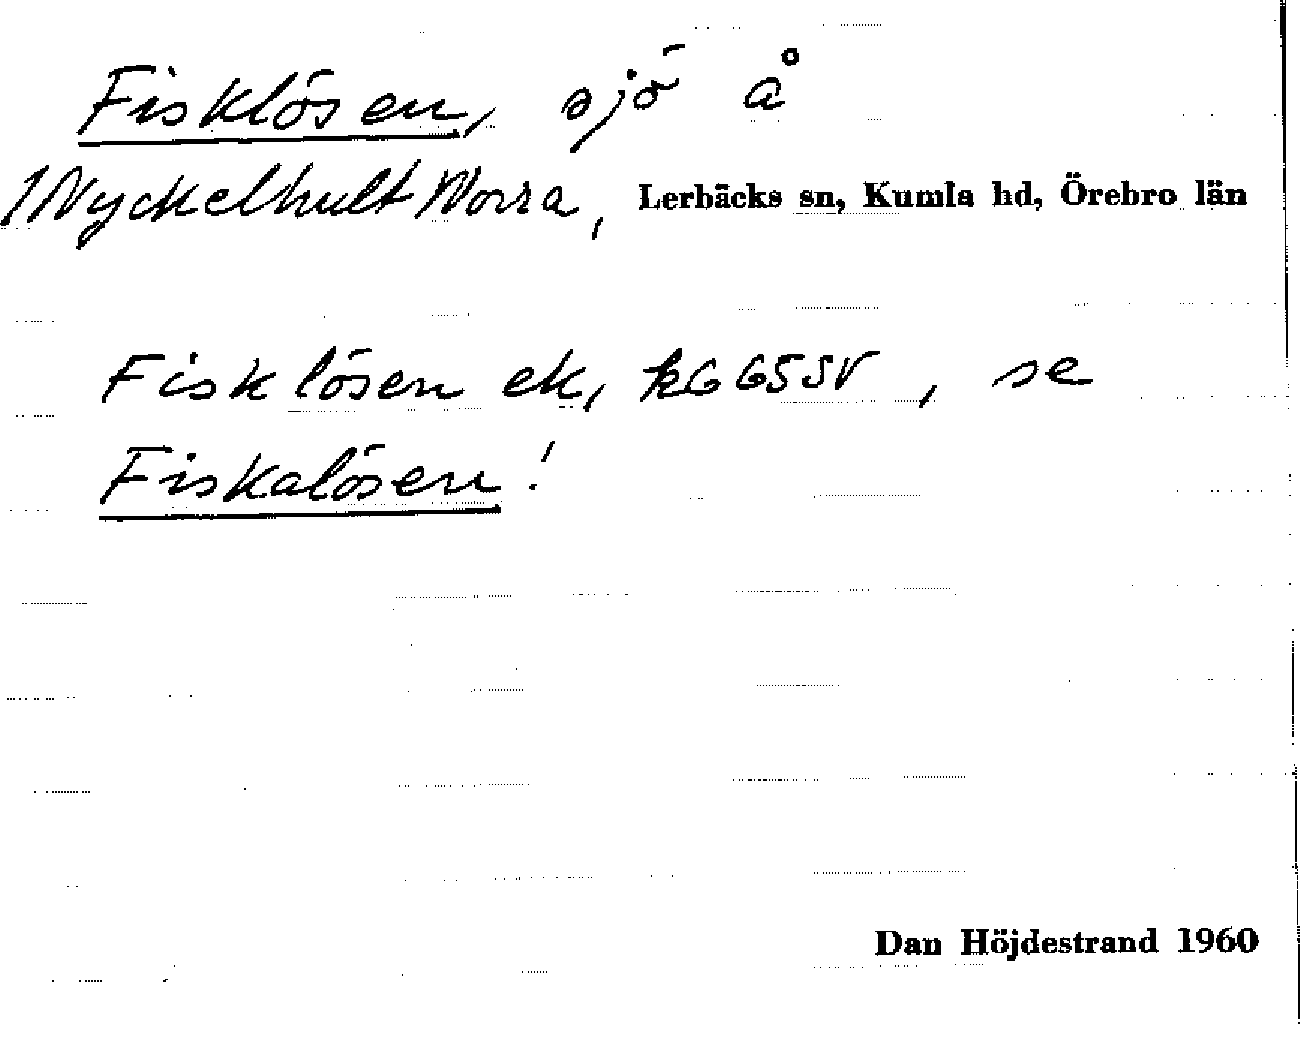 Fisklösen, sjö å
1 Nyckelhult Norra, Lerbäcks sn, Kumla hd, Örebro län
Fisklösen ek, k6 65SV, se
Fiskalösen!
Dan Höjdestrand 1960